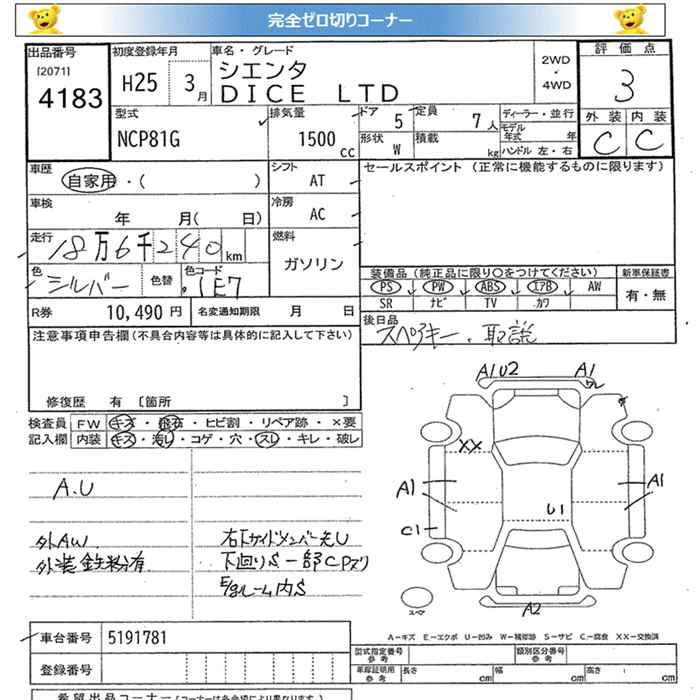 完全ゼロ切りコーナー
出品番号 初度登録年月 車名・グレード 評価点
[2071] 4183 H25 3月 シエンタ DICE LTD 2WD・4WD 3
外装 内装
C C
型式 排気量 ドア 5 定員 7人 ディーラー・並行
NCP81G 1500cc 形状 W 積載 kg モデル年式 年
ハンドル 左・右
車歴 シフト セールスポイント (正常に機能するものに限ります)
自家用・( ) AT
車検 冷房
年 月( 日) AC
走行 燃料
18万6千240km ガソリン
色 色替 色コード 装備品 (純正品に限り○をつけてください) 新車保証書
シルバー 1E7 PS PW ABS エアB AW 有・無
SR ナビ TV カワ
R券 10,490円 名変通知期限 月 日 後日品
スペアキー、取説
注意事項申告欄(不具合内容等は具体的に記入して下さい)
修復歴 有 [箇所 ]
検査員記入欄 FW キズ・飛石・ヒビ割・リペア跡・×要
内装 キズ・汚レ・コゲ・穴・スレ・キレ・破レ
A1U2 A1
ワレ
XX
A1 A1
U1
C1
A2
スペア
A.U
外AW 右下サイドメンバー先U
外装鉄粉有 下廻りS 一部CPヌリ
E/gルーム内S
A-キズ E-エクボ U-凹み W-補修跡 S-サビ C-腐食 XX-交換済
車台番号 5191781
登録番号
型式指定番号 参考 類別区分番号 参考
車庫証明用 参考 長さ cm 幅 cm 高さ cm
希望出品コーナー(コーナーは各会場により異なります。)